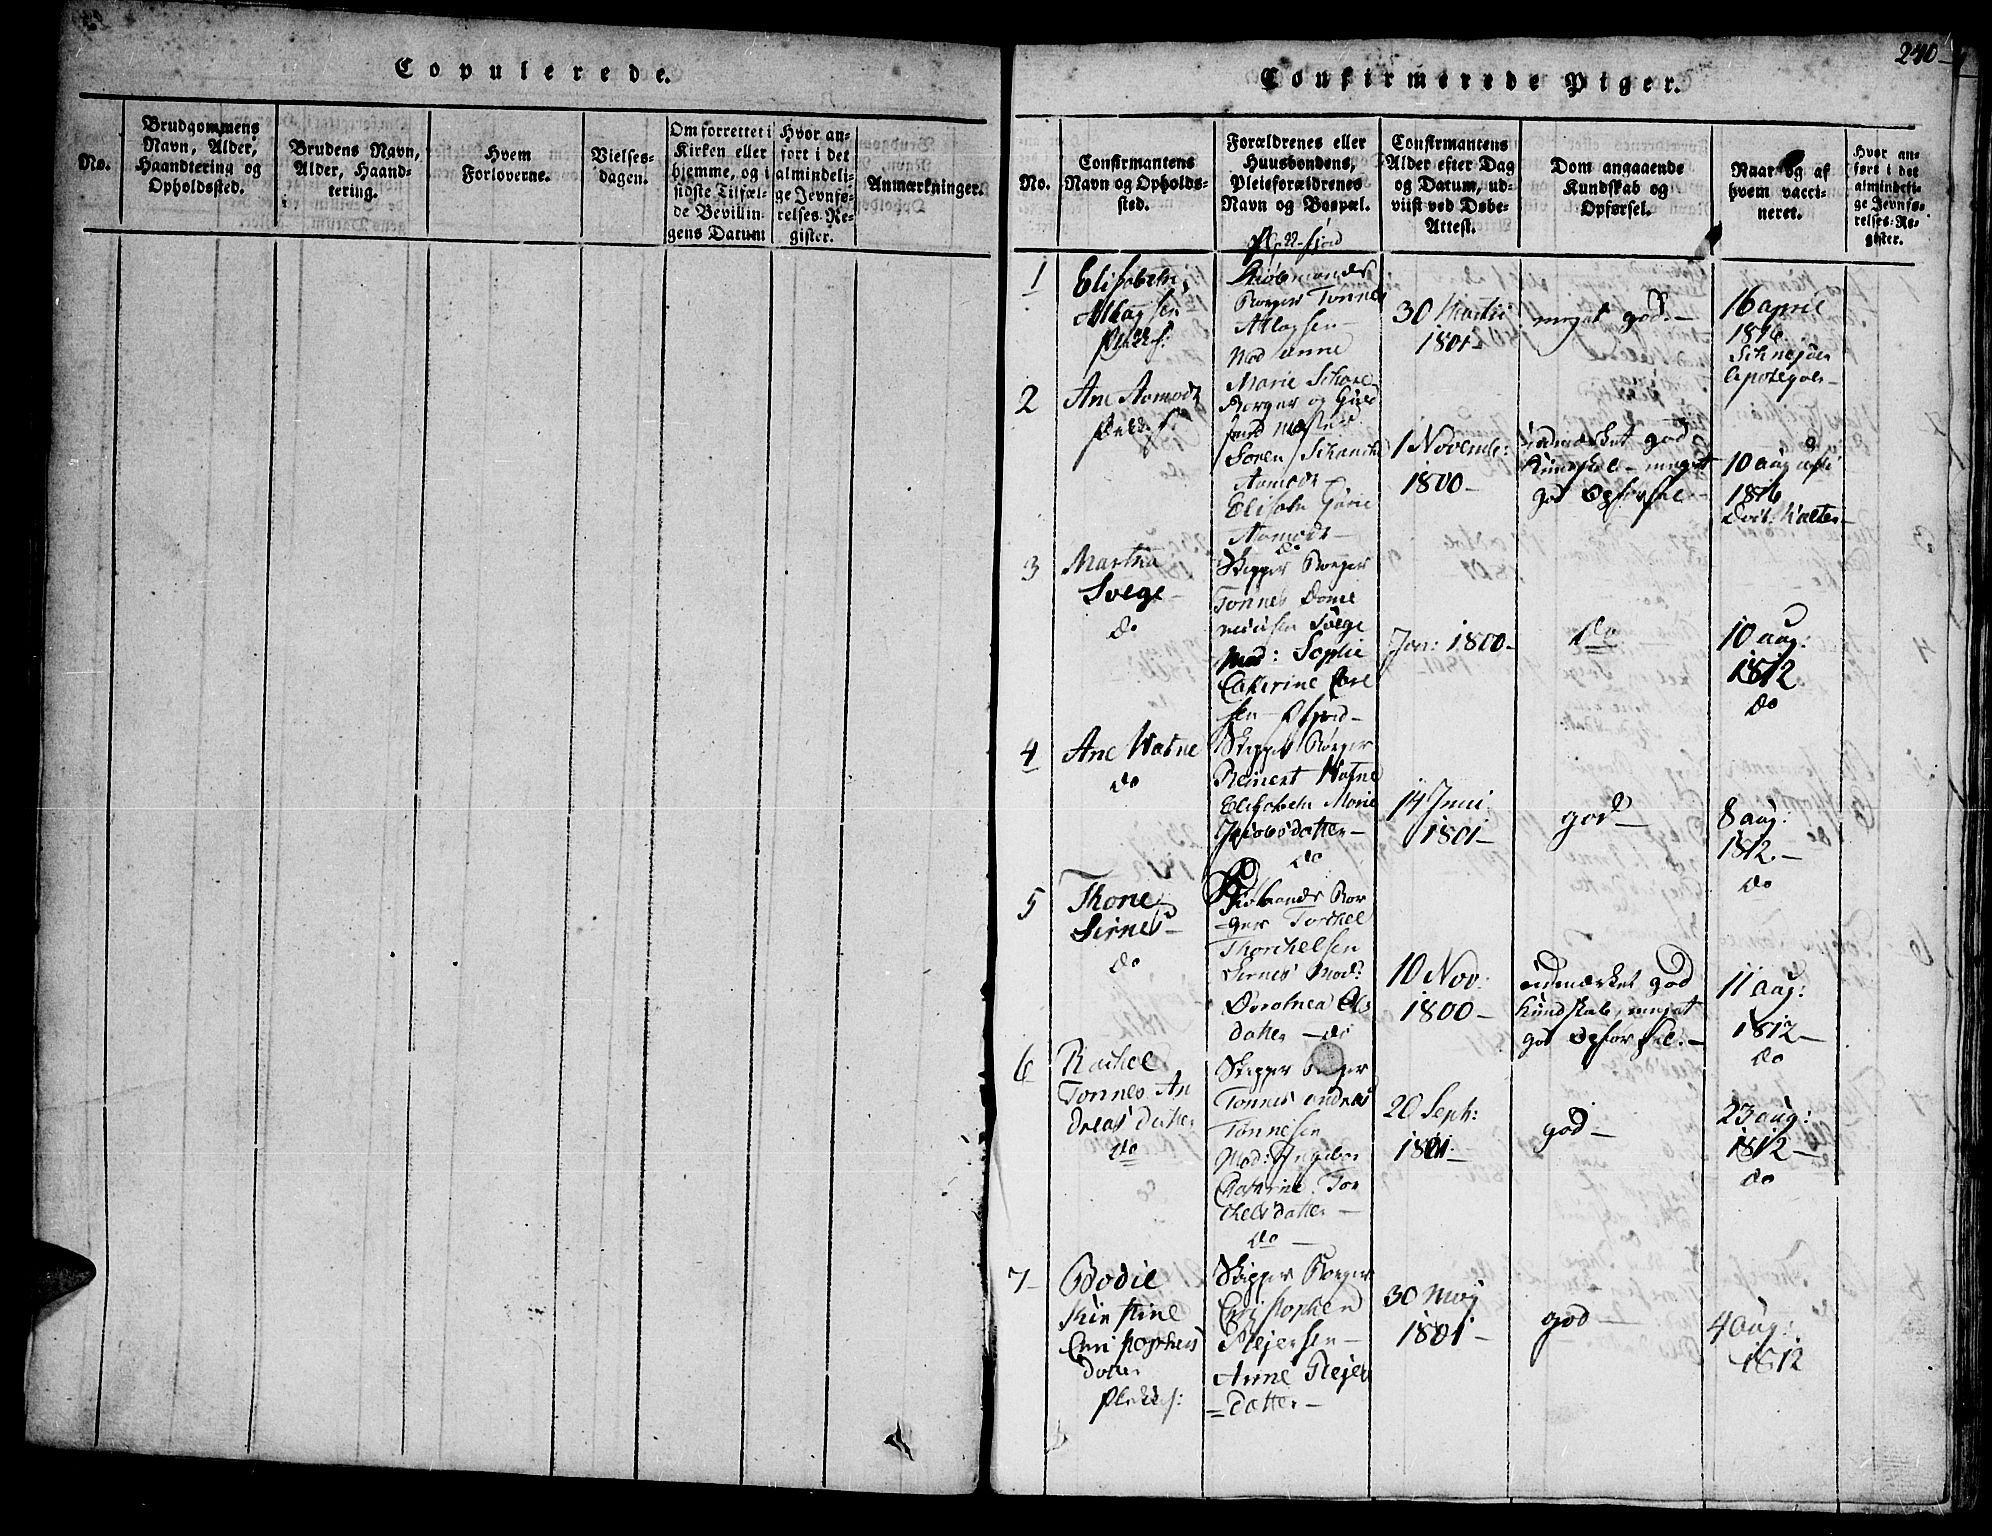 Copulerede.
No.
Brudgommens
Navn, Alder,
Haandtering og
Opholdssted.
Brudens Navn,
Alder, Haand-
tering.
Hvem
Forloverne.
Vielses-
dagen.
Om forrettet i
Kirken eller
hjemme, og i
sidste Tilfæl-
de Bevilin-
gens Datum
Hvor an-
ført i det
almindeli-
ge Jevnfø-
relses-Re-
gister.
Anmærkninger.
240
Confirmerede Piger.
No.
Confirmantens
Navn og Opholds-
sted.
Forældrenes eller
Huusbondens,
Pleieforældrenes
Navn og Bopæl.
Confirmantens
Alder efter Dag
og Datum, ud-
viist ved Døbe-
Attest.
Dom angaaende
Kundskab og
Opførsel.
Naar og af
hvem vacci-
neret.
Hvor an-
ført i det
almindeli-
ge Jevnfø-
relses-Re-
gister.
1
Elisabeth
Atlagsen
Flekkef:
Borger Tønnes
Atlagsen
Mod Anne
Marie
30 Martii
1801
meget god.
16 april
1816
2
Ane Aamodt
Flekkef
Borger og
Søren Schancke
Aamodt
Elisabeth
Aamodt
do
1 Novemb:
1800
udmærket god
Kundskab meget
god Opførsel.
10 augusti
1816
3
Martha
Svege
do
Skipper Borger
Tønnes
Svege
Mod: Sophie
Catherine
Jan: 1800
do
10 aug:
1812
do
4
Ane Watne
do
Skipper Borger
Reinert Watne
Elisabeth Marie
Jacobsdatter
do
14 Juni
1801
god
8 aug:
1812.
do
5
Thone
Sirnes
do
Borger
Torkel
Thorkelsen
Sirnes Mod:
Dorothea Ols
datter do
10 Nov:
1800
udmærket god
Kundskab, meget
god Opførsel.
11 aug:
1812
do
6
Rachel
Tønnes An
dreas Datter
do
Skipper Borger
Tønnes Andreas
Tønnesen
Mod: Ingebor
Chatrine Tor
chelsdatter
do
20 Sept:
1801
god
23 aug:
1812
do
7
Bodil
Kirstine
Christophers
Datter
Flekkef:
Skipper Borger
Christopher
Reiersen
Anne Reiers
Datter
30 Maj
1801
god
4 aug:
1812